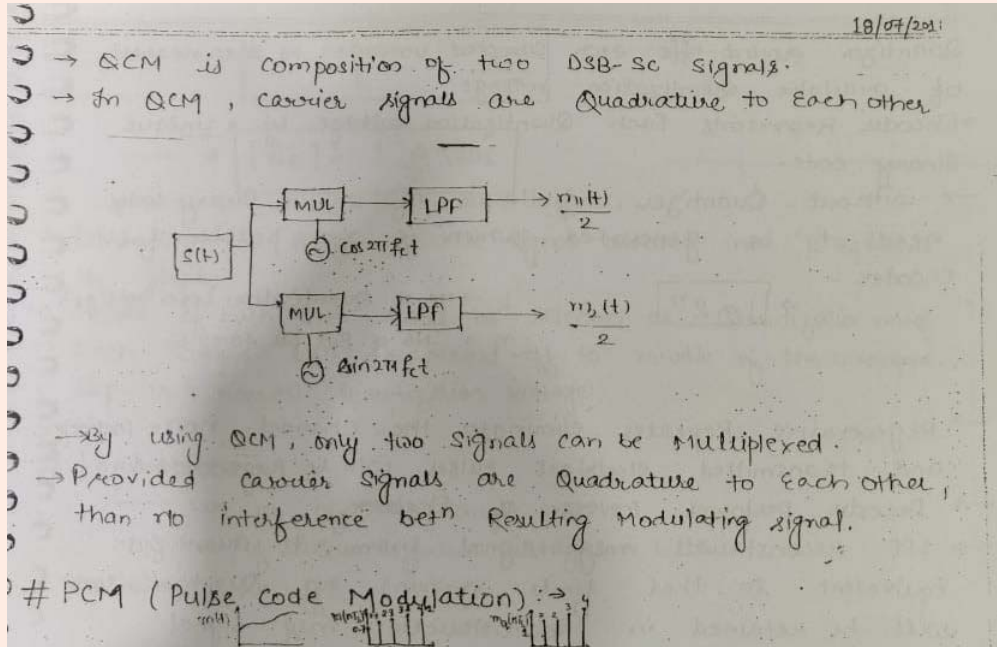 18/07/201
→ QCM is composition of two DSB-SC Signals.
→ In QCM, carrier signals are Quadrature to Each other
MUL → LPF → m1(t)/2
cos2πfct
S(t)
MUL → LPF → m2(t)/2
sin2πfct
→ By using QCM, only two signals can be Multiplexed.
→ Provided carrier signals are Quadrature to Each other,
than no interference betn Resulting Modulating signal.
# PCM (Pulse Code Modulation) :→
m(t)